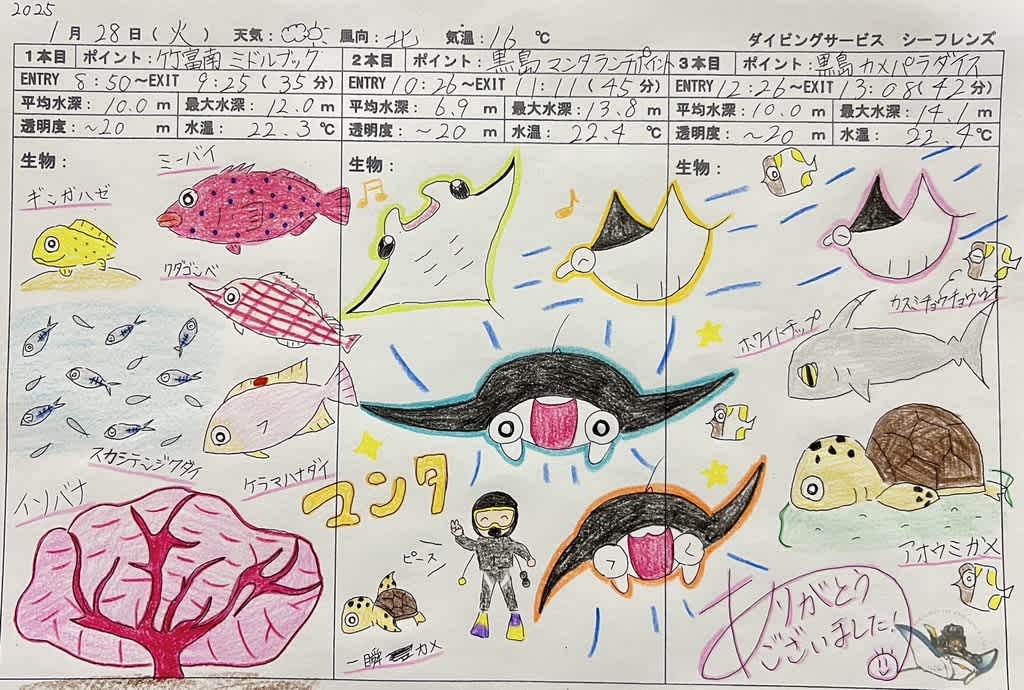 2025
1月28日(火) 天気: 風向:北 気温:16℃ ダイビングサービス シーフレンズ
1本目 ポイント:竹富南 ミドルブック
ENTRY 8:50~EXIT 9:25(35分)
平均水深:10.0m 最大水深:12.0m
透明度:~20m 水温:22.3℃
生物:
ミーバイ
ギンガハゼ
クダゴンベ
スカシテンジクダイ
ケラマハナダイ
イソバナ
2本目 ポイント:黒島 マンタランチポイント
ENTRY 10:26~EXIT 11:11(45分)
平均水深:6.9m 最大水深:13.8m
透明度:~20m 水温:22.4℃
生物:
マンタ
ピース
一瞬 カメ
3本目 ポイント:黒島 カメパラダイス
ENTRY 12:26~EXIT 13:08(42分)
平均水深:10.0m 最大水深:14.1m
透明度:~20m 水温:22.4℃
生物:
カスミチョウチョウウオ
ホワイトチップ
アオウミガメ
ありがとう
ございました!